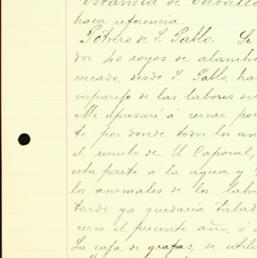 Estancia de Caballo
hacer referencia.
Potrero de S. Pablo. Se
dos 40 royos de alambre
cercado, desde S. Pablo, ha
de las labores de
Me apresuré á cercar por
te por donde todos los an
el rumbo de El Caporal,
esta parte a la agua y
los animales de los labo
tarde ya quedaria
cerco el presente año, ó
La caja de grapas, se utili